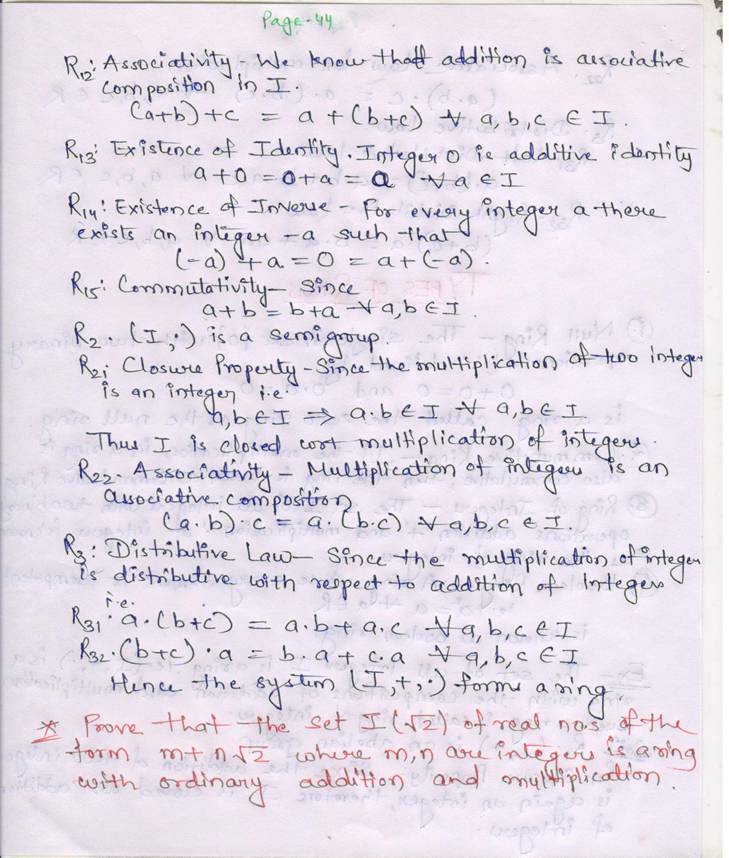 Page-44
R12: Associativity - We know that addition is associative
composition in I.
(a+b)+c = a+(b+c) ∀ a,b,c ∈ I.
R13: Existence of Identity. Integer 0 is additive identity
a+0=0+a=a ∀ a∈I
R14: Existence of Inverse - For every integer a there
exists an integer -a such that
(-a)+a=0=a+(-a).
R15: Commutativity - Since
a+b=b+a ∀ a,b∈I.
R2 (I,·) is a semigroup.
R21 Closure Property - Since the multiplication of two integer
is an integer i.e.
a,b∈I ⇒ a·b∈I ∀ a,b∈I
Thus I is closed wrt multiplication of integers.
R22- Associativity - Multiplication of integers is an
associative composition
(a·b)·c = a·(b·c) ∀ a,b,c ∈ I.
R3: Distributive Law - Since the multiplication of integer
is distributive with respect to addition of Integers
i.e.
R31· a·(b+c) = a·b+a·c ∀ a,b,c∈I
R32·(b+c)·a = b·a+c·a ∀ a,b,c∈I
Hence the system (I+,·) forms a ring.
* Prove that the set I(√2) of real nos of the
form m+n√2 where m,n are integers is a ring
with ordinary addition and multiplication.